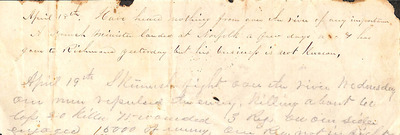 April 18th. Have heard nothing from over the river of any importance.
A French minister landed at Norfolk a few days ago & has
gone to Richmond yesterday but his business is not known.
April 19th Skirmish fight over the river Wednesday
our men repulsed the enemy, killing about
loss, 20 killed wounded 3 Regs. on our side
engaged 10000 of enemy. Our